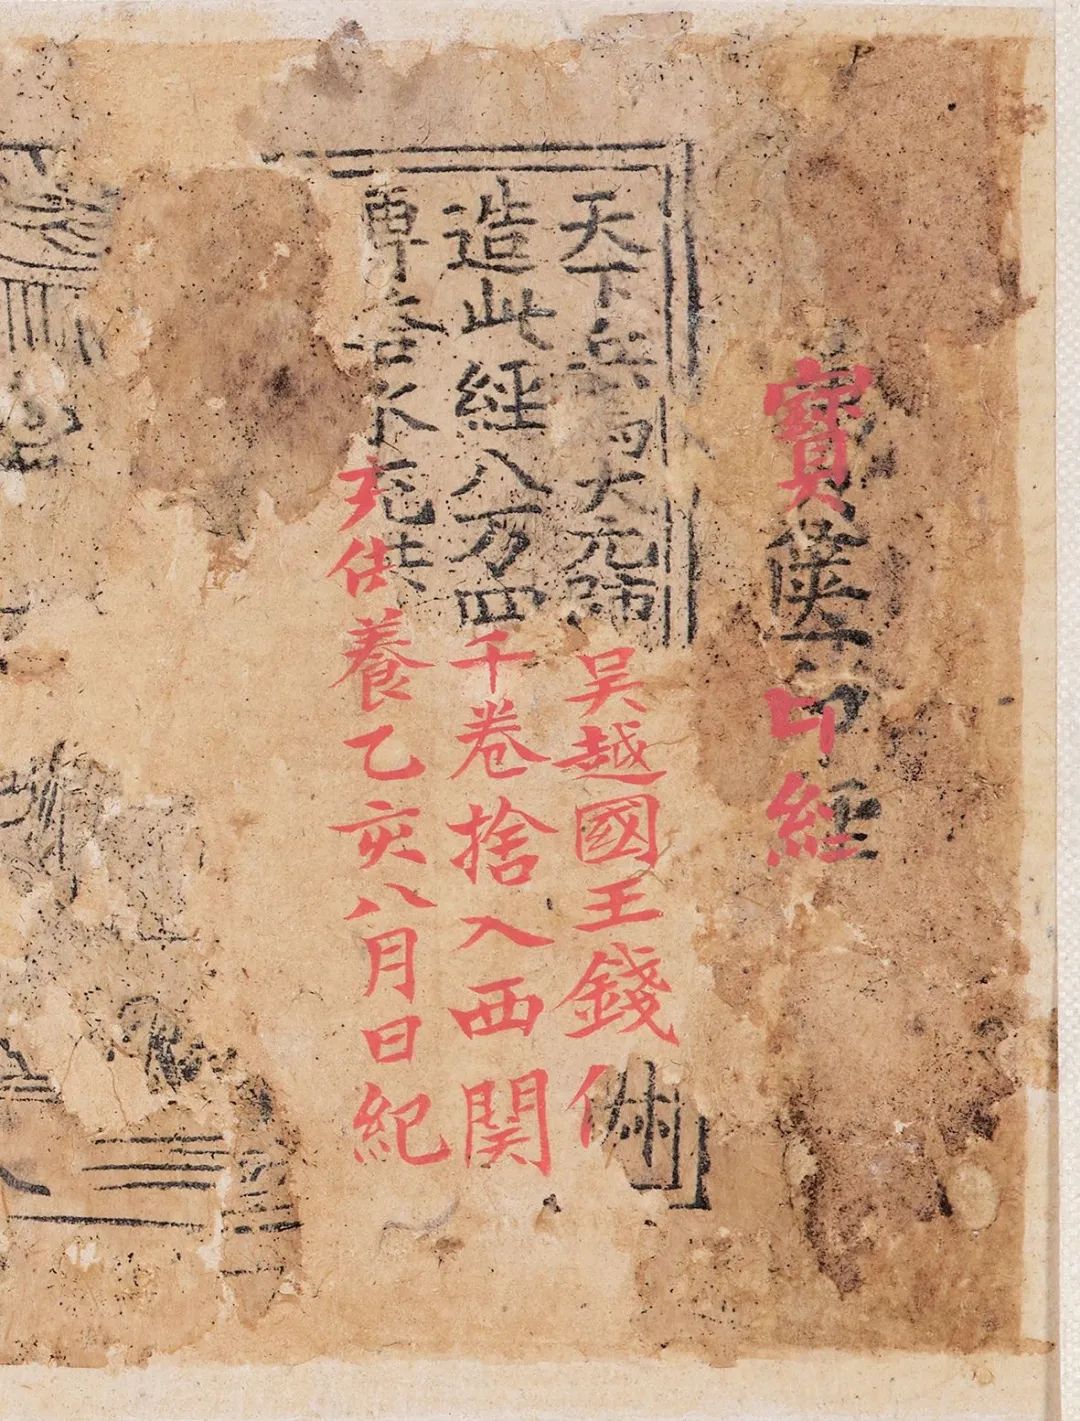 寶篋印經
天下兵馬大元帥吴越國王錢俶
造此經八万四千卷捨入西関
塼塔永充供養乙亥八月日紀